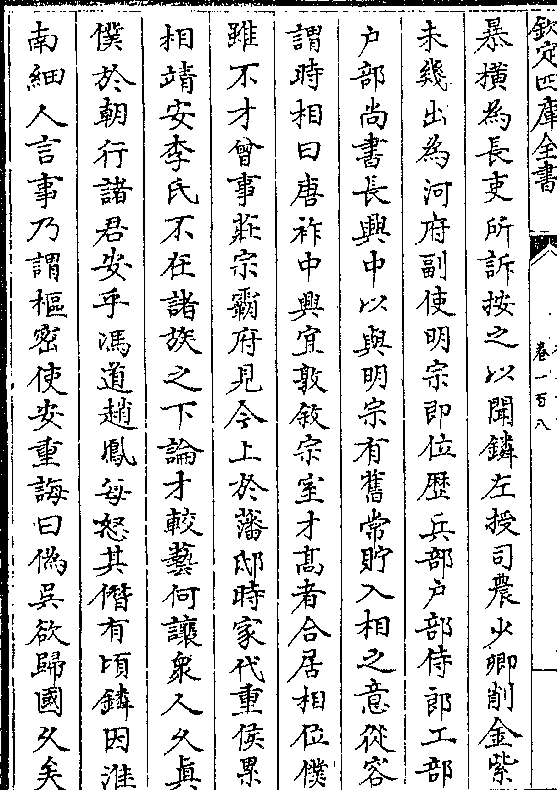 欽定四庫全書
卷一百八
暴横為長吏所訴按之以聞鏻左授司農少卿削金紫
未幾出為河府副使明宗即位歷兵部户部侍郎工部
户部尚書長興中以與明宗有舊常貯入相之意從容
謂時相曰唐祚中興宜敦敘宗室才髙者合居相位僕
雖不才曾事莊宗霸府見今上於藩邸時家代重侯累
相靖安李氏不在諸族之下論才較藝何讓衆人久寘
僕於朝行諸君安乎馮道趙鳳每怒其僭有頃鏻因淮
南細人言事乃謂樞密使安重誨曰偽吳欲歸國久矣